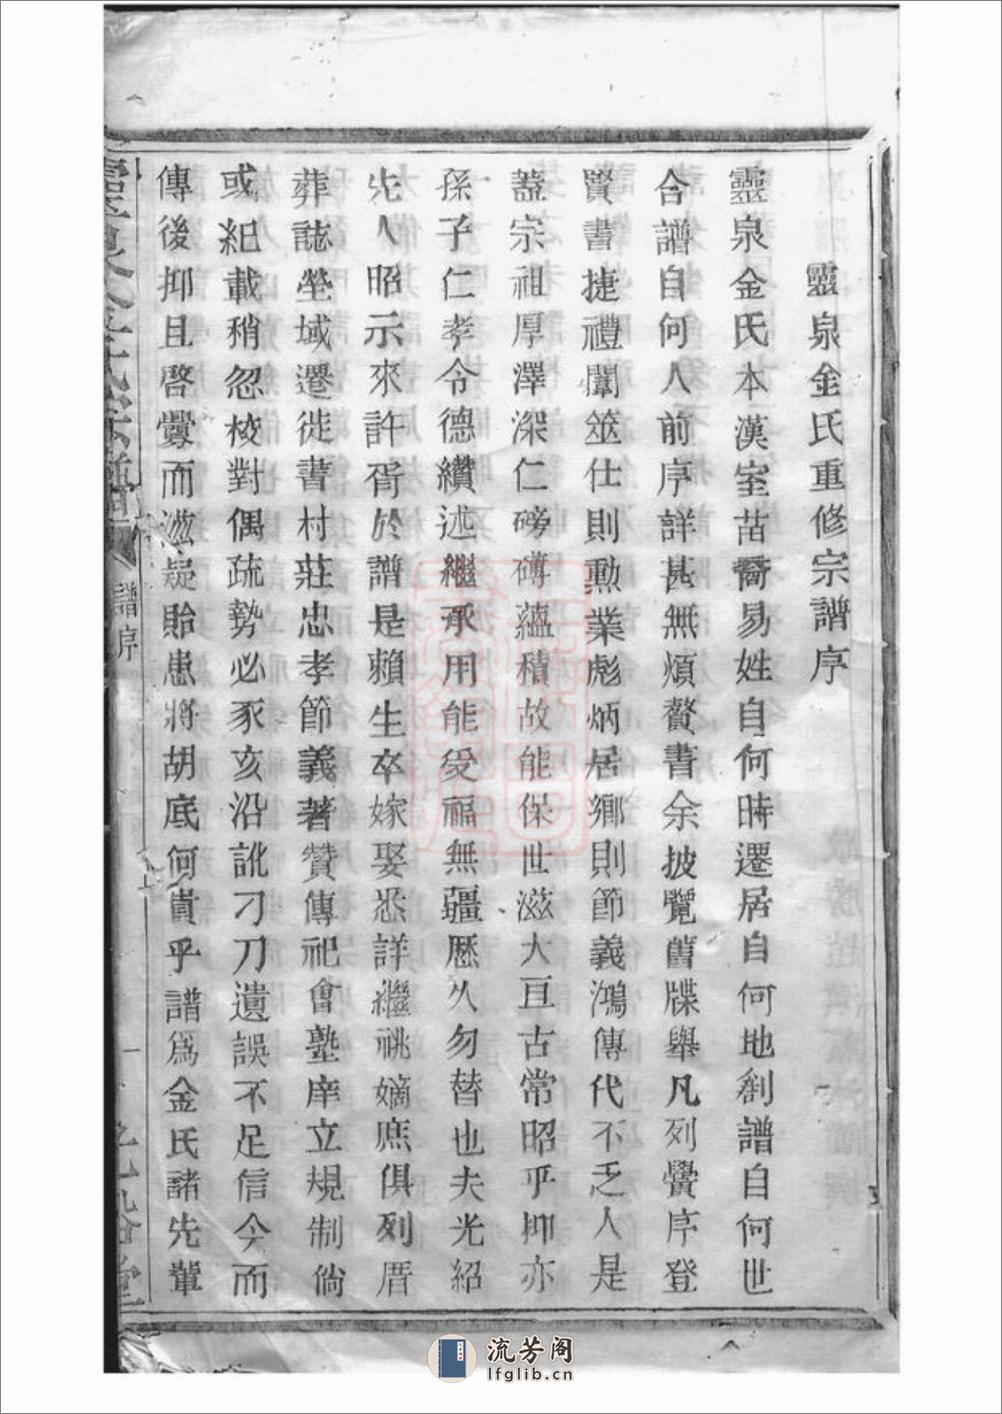 靈泉金氏重修宗譜序
靈泉金氏本漢室苗裔易姓自何時遷居自何地創譜自何世
合譜自何人前序詳甚無煩贅書余披覽舊牒舉凡列黌序登
賢書捷禮闈筮仕則勳業彪炳居鄉則節義鴻傳代不乏人是
蓋宗祖厚澤深仁磅礴蘊積故能保世滋大亘古常昭乎抑亦
孫子仁孝令德纘述繼承用能受福無疆歷久勿替也夫光紹
先人昭示來許胥於譜是賴生卒嫁娶悉詳繼祧嫡庶俱列厝
葬誌塋域遷徙書村莊忠孝節義著贊傳祀會塾庠立規制倘
或紀載稍忽校對偶疏勢必豕亥沿訛刁刀遺誤不足信今而
傳後抑且啓釁而滋疑貽患將胡底何貴乎譜為金氏諸先輩
譜序
一
流芳阁
lfglib.cn